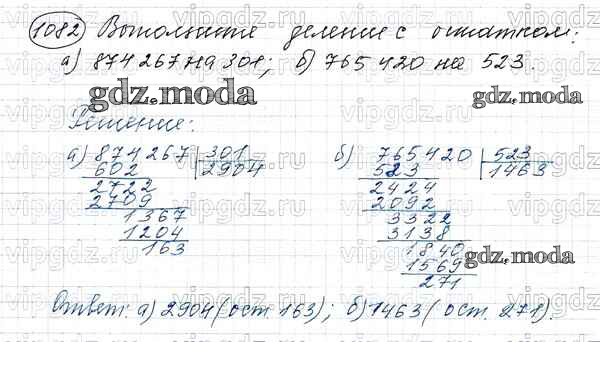 1082 Выполните деление с остатком:
а) 874 267 на 301; б) 765 420 на 523.
gdz.moda
gdz.moda
Решение:
а) 874267 301
602 2904
2722
2709
1367
1204
163
б) 765420 523
523 1463
2424
2092
3322
3138
1840
gdz.moda
1569
271
Ответ: а) 2904 (ост. 163); б) 1463 (ост. 271).